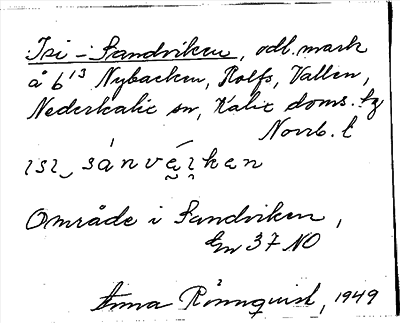 Isi-Sandviken, odl. mark
å 6¹³ Nybacken, Rolfs, Vallen,
Nederkalix sn, Kalix doms. tg
Norrb. l
ɪsɪ sánvɛ́ɪkɛn
Område i Sandviken,
Em 37 NO
Anna Rönnquist, 1949